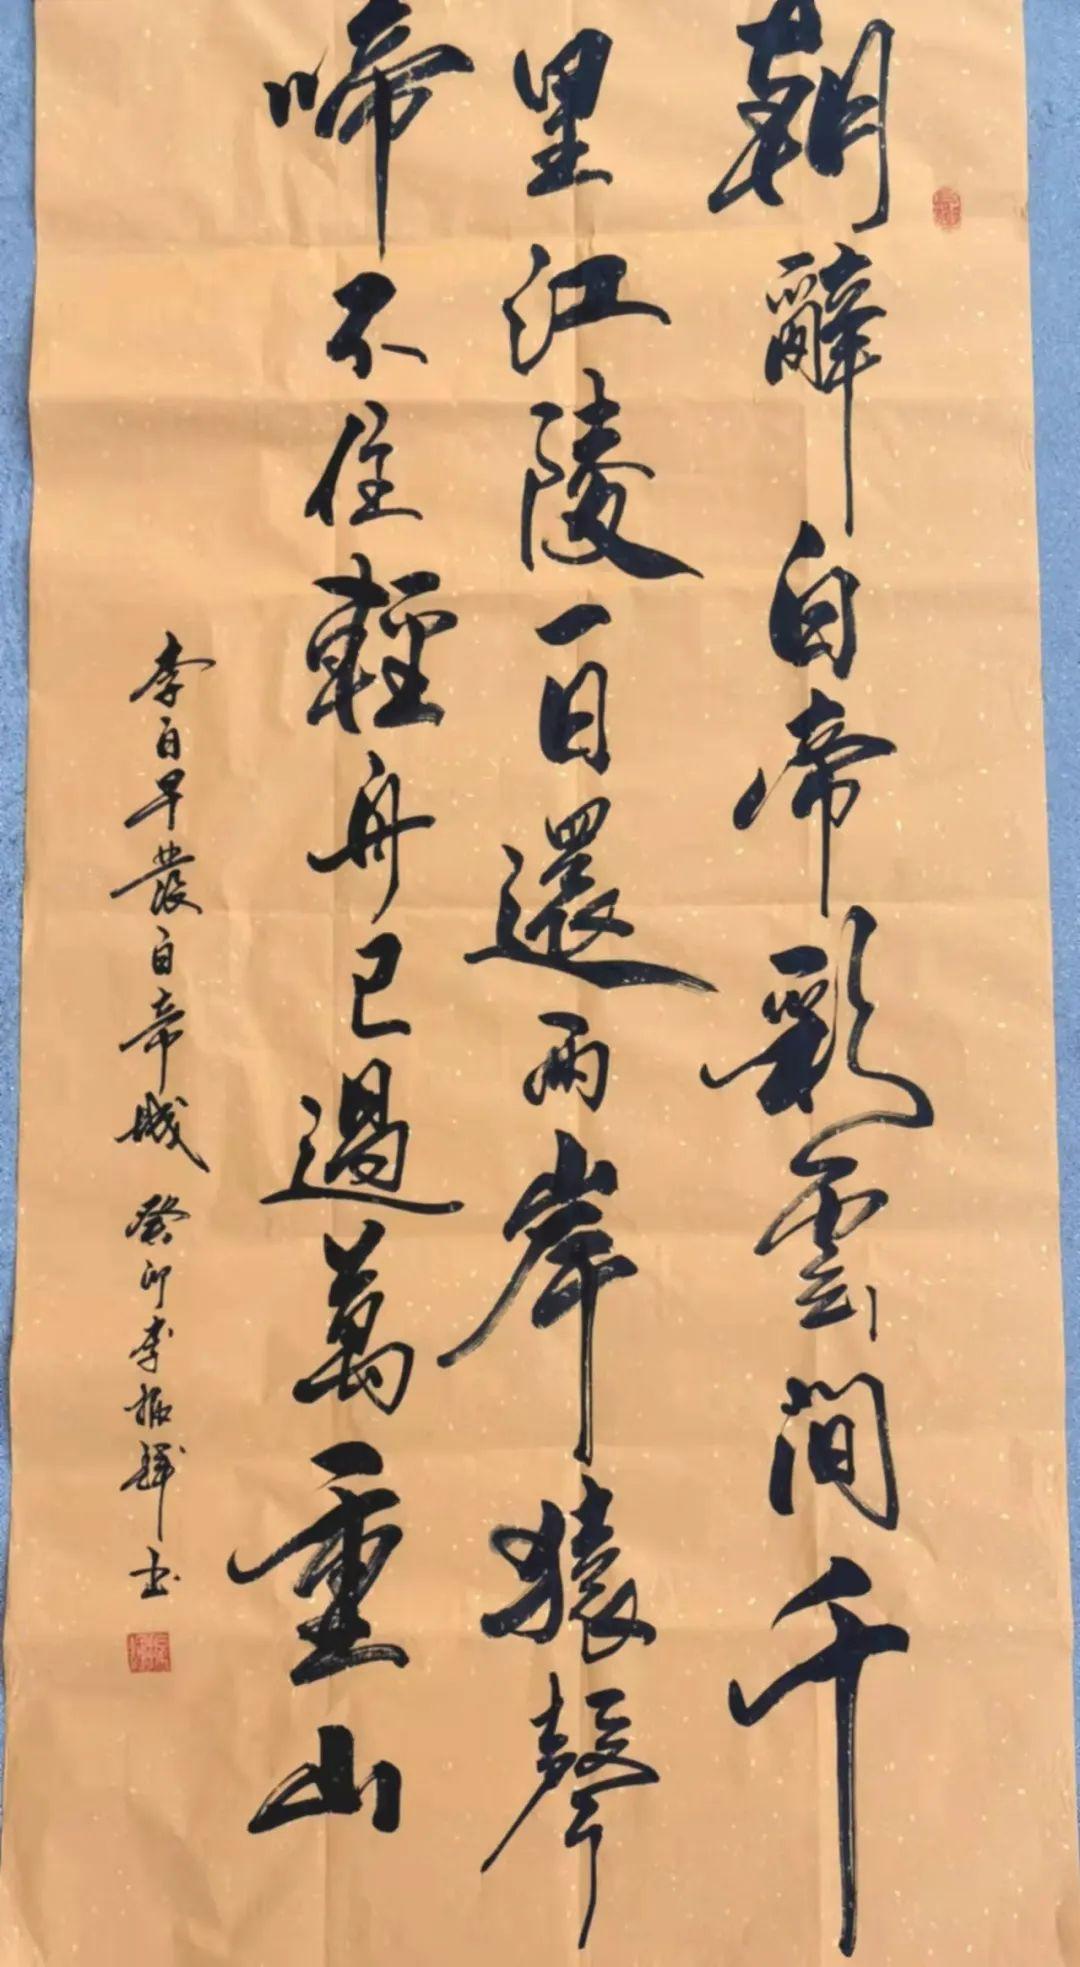 朝辭白帝彩雲間千
里江陵一日還兩岸猿聲
啼不住輕舟已過萬重山
李白早發白帝城 癸卯李振鋒书